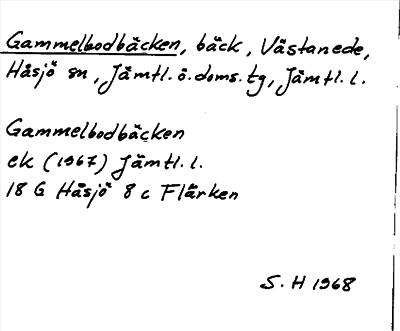 Gammelbodbäcken, bäck, Västanede,
Håsjö sn, Jämtl. ö. doms. tg, Jämtl. l.
Gammelbodbäcken
ek (1967) Jämtl. l.
18 G Håsjö 8 c Flärken
S. H 1968